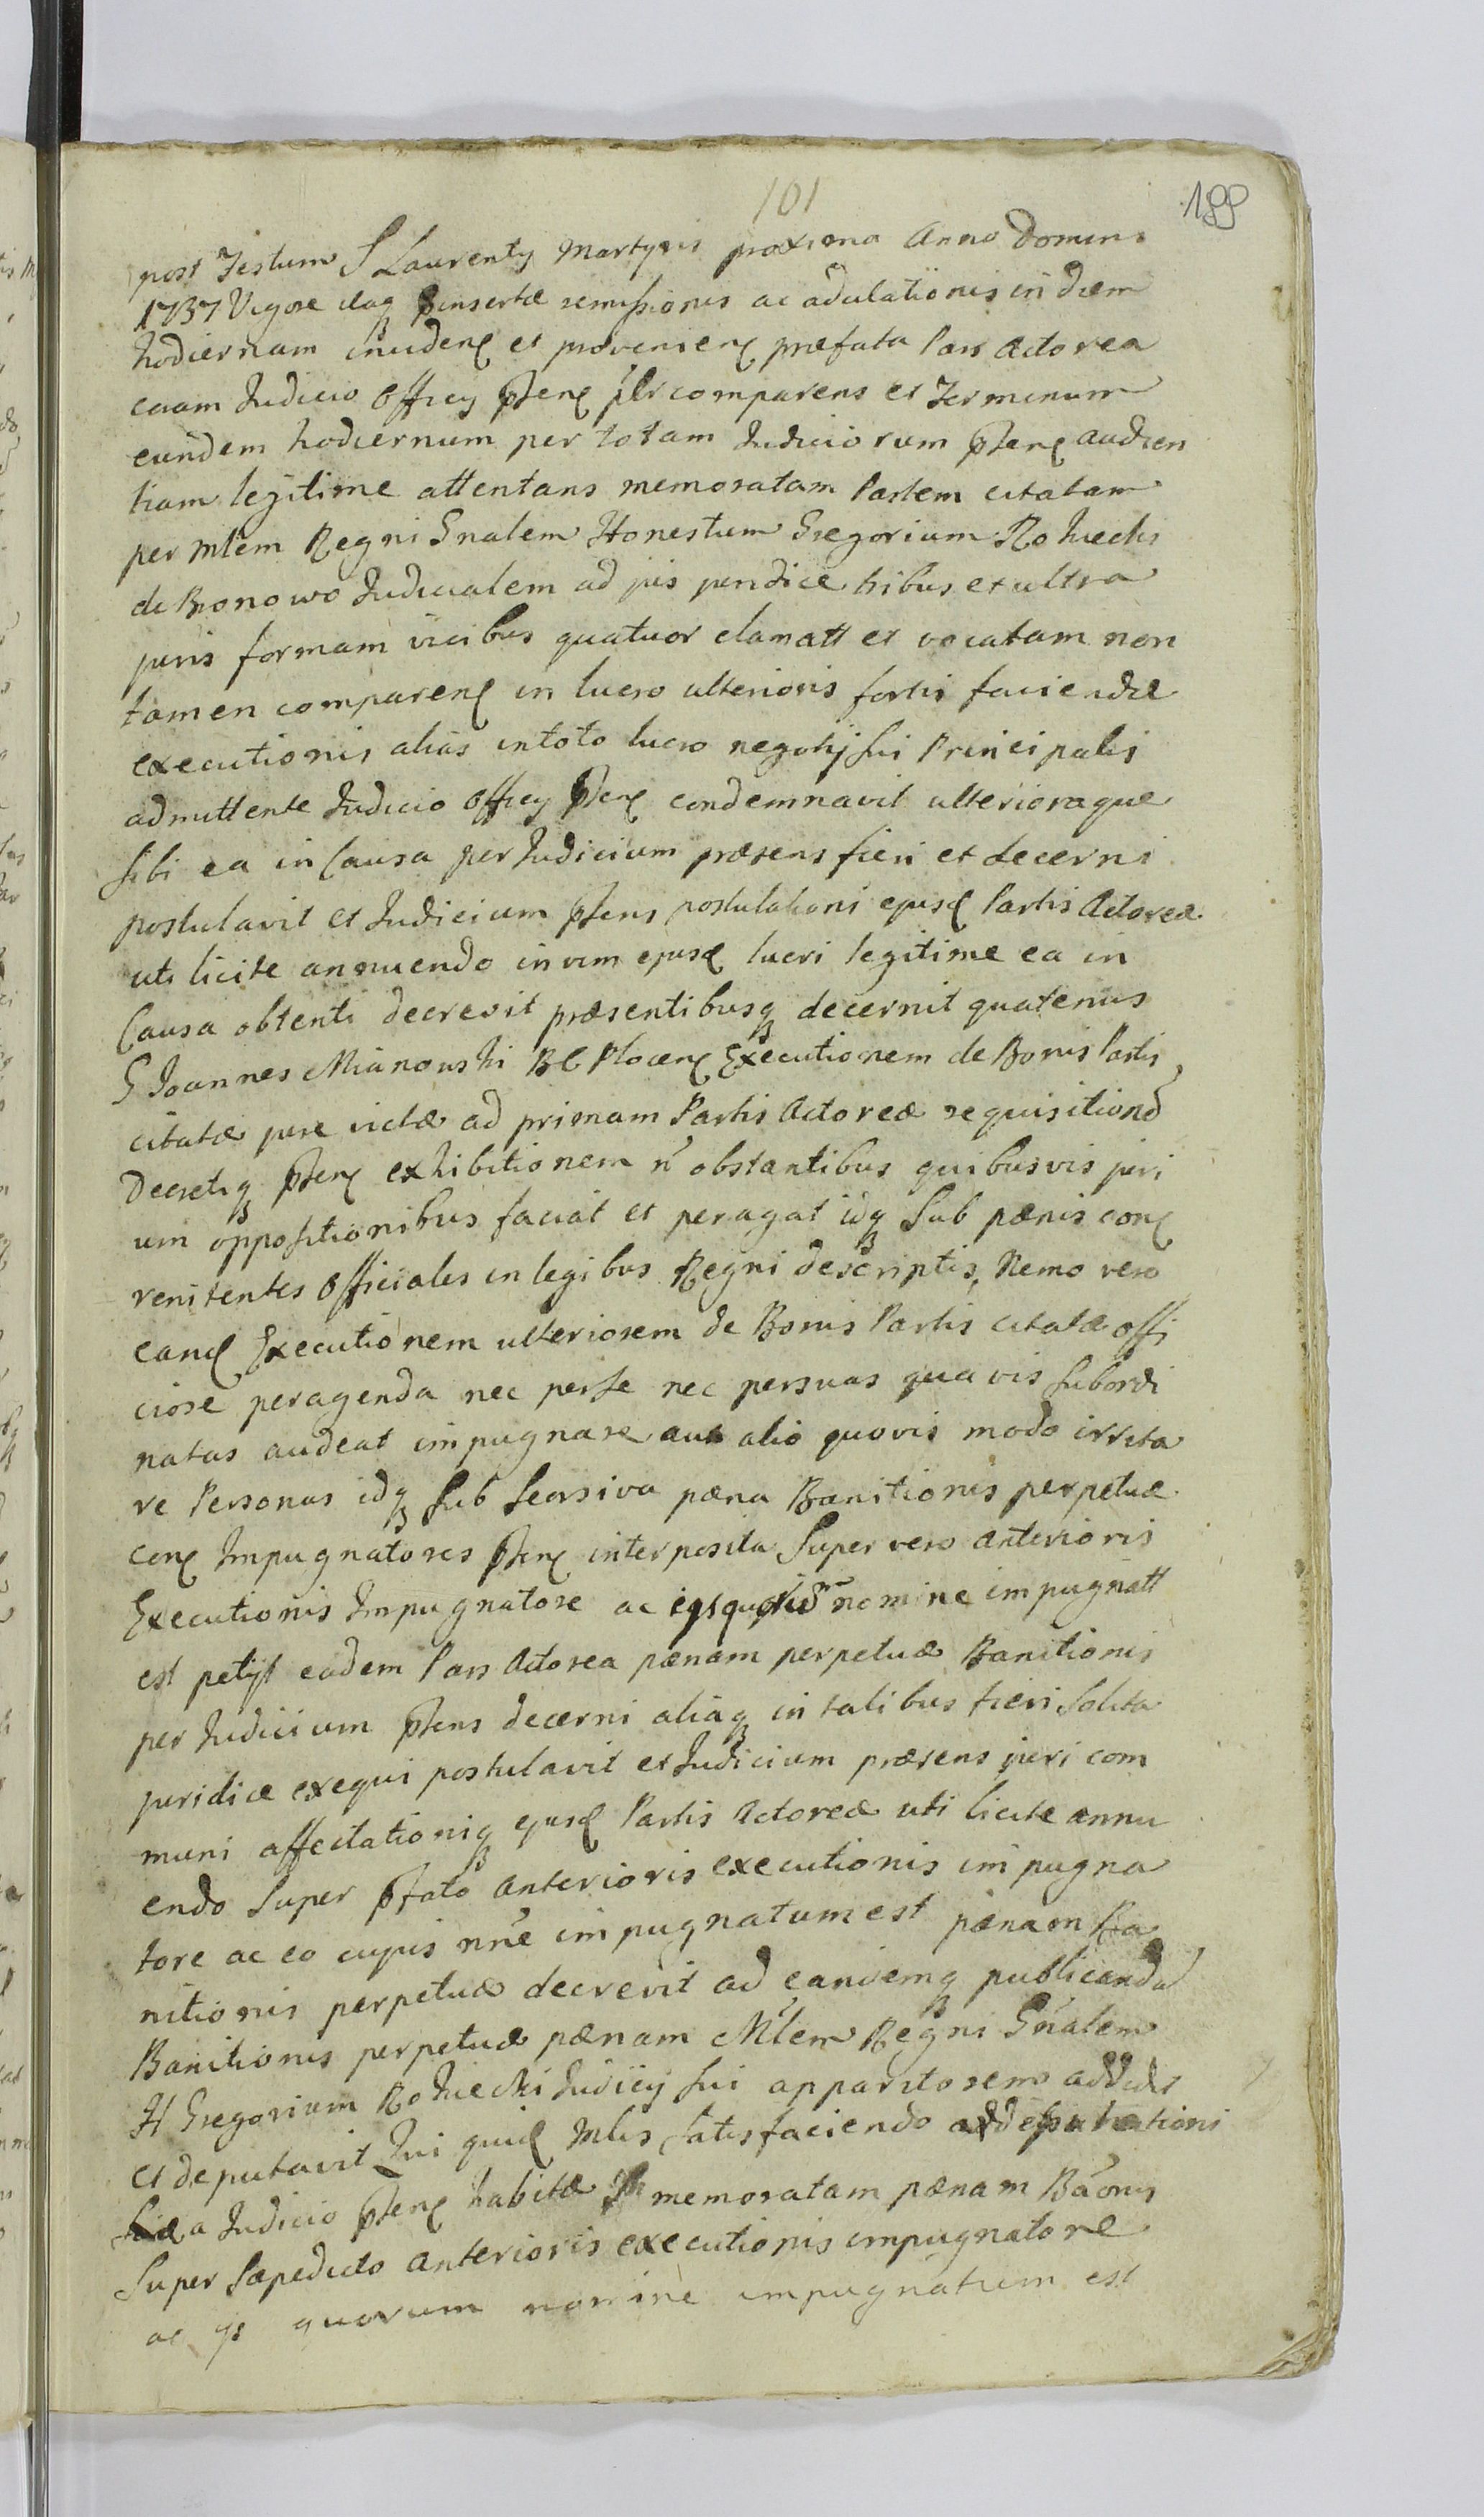 101
199
post Festum S Laurentij Martyris proxima Anno Domini
1737 Vigore itaq pinsertæ remissionis ac adulationis in diem
hodiernam incidenę et provenienę præfata Pars Actorea
coram Judicio Officij pstenę plr comparens et Terminum
eundem hodiernum per totam Judiciorum pstenę audien
tiam legitime attentans memoratam Partem citatam
per Mlem Regni Gnalem Honestum Gregorium
de Bronowo Judicialem ad jus juridice tribus et ultra
juris formam vicibus quatuor clamatt et vocatam non
tamen comparenę in lucro ulterioris fortis faciendæ
executionis alias in toto lucro negotij sui Principalis
admittente Judicio Officij pstenę condemnavit ulterioraque
sibi ea in Causa per Judicium præsens fieri et decerni
postulavit et Judicium pstens postulationi ejusd Partis Actoreæ
uti licite annuendo in vim ejusd lucri legitime ea in
Causa obtenti decrevit præsentibusq decernit quatenus
G Joannes Mianowski BC Plocenę Executionem de Bonis Partis
citatæ jure victæ ad primam Partis Actoreæ requisitionē
Decretiq pstenę exhibitionem ñ obstantibus quibusvis juri
um oppositionibus faciat et peragat idq sub pænis conę
renitentes Officiales in legibus Regni descriptis, Nemo vero
eand Executionem ulteriorem de Bonis Partis citatæ offi
ciose peragenda nec per se nec per suas quavis subordi
natas audeat impugnare aut alio quovis modo irrita
re Personas idq sub seorsiva pæna Banitionis perpetuæ
conę Impugnatores pstenę interposita Super vero anterioris
Executionis Impugnatore ac nomine impugnatt
est petijt eadem Pars Actorea pænam perpetuæ Banitionis
per Judicium pstens decerni aliaq in talibus fieri solita
juridice exequi postulavit et Judicium præsens juri com
muni affectationiq ejusd Partis Actoreæ uti licite annu
endo super pfato anterioris executionis impugna
tore ac eo cujus nñe impugnatum est pænam Ba
nitionis perpetuæ decrevit ad eandemq publicandā
Banitionis perpetuæ pænam Mlem Regni Gnalem
H Gregorium Judicij sui apparitorem addidit
et deputavit Qui quid Mlis satisfaciendo addeputationi
suæ a Judicio pstenę habitæ memoratam pænam Bãonis
super sæpedicto anterioris executionis impugnatore
ac ys quorum nomine impugnatum est